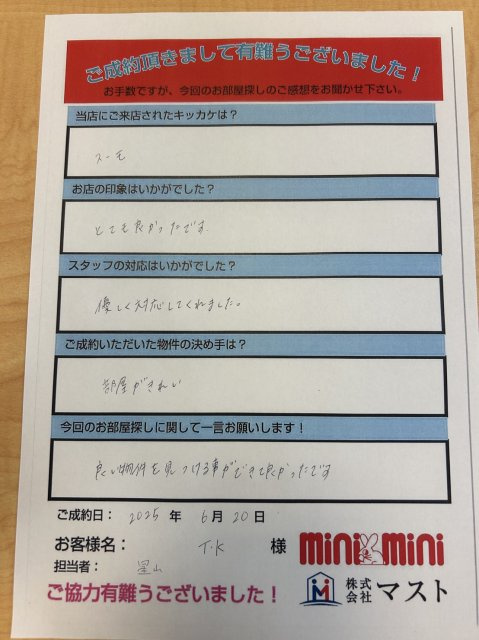 ご成約頂きまして有難うございました！
お手数ですが、今回のお部屋探しのご感想をお聞かせ下さい。
当店にご来店されたキッカケは？
スーモ
お店の印象はいかがでした？
とても良かったです
スタッフの対応はいかがでした？
優しく対応してくれました。
ご成約いただいた物件の決め手は？
部屋がきれい
今回のお部屋探しに関して一言お願いします！
良い物件を見つける事ができて良かったです
ご成約日： 2025 年 6月 20日
お客様名： T.K 様
担当者： 星山
mini mini
株式会社 マスト
ご協力有難うございました！